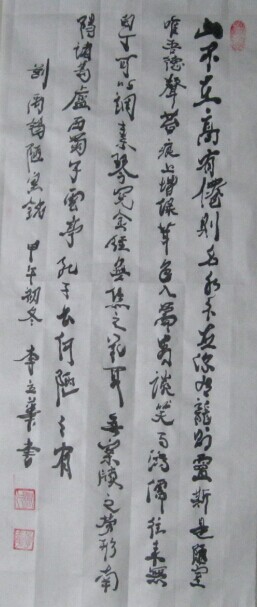 山不在高有僊則名水不在深有龍則靈斯是陋室
唯吾德馨苔痕上堦緑草色入簾青談笑有鴻儒往來無
白丁可以調素琴閲金經無絲之亂耳無案牘之勞形南
陽諸葛廬西蜀子雲亭孔子云何陋之有
劉禹錫陋室銘 甲午初冬 李立華書